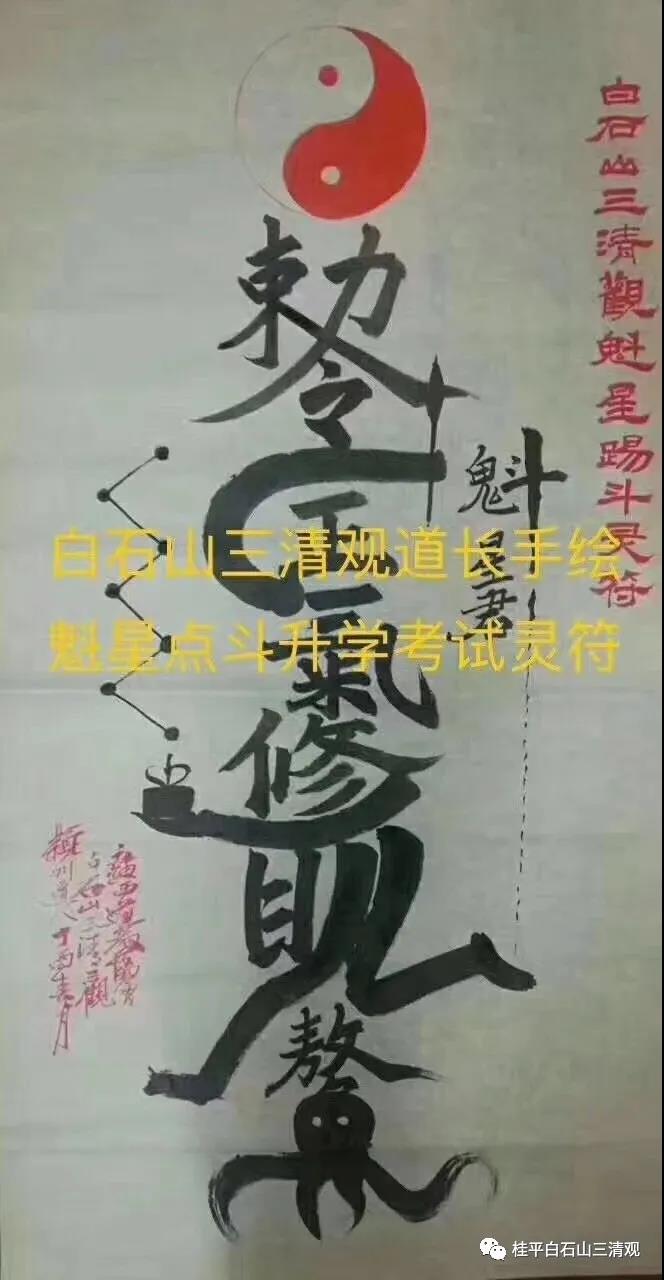 白石山三清觀魁星踢斗灵符
勅令
魁星君
正氣修
鰲
白石山三清观道长手绘
魁星点斗升学考试灵符
白石山三清觀
桂平白石山三清观